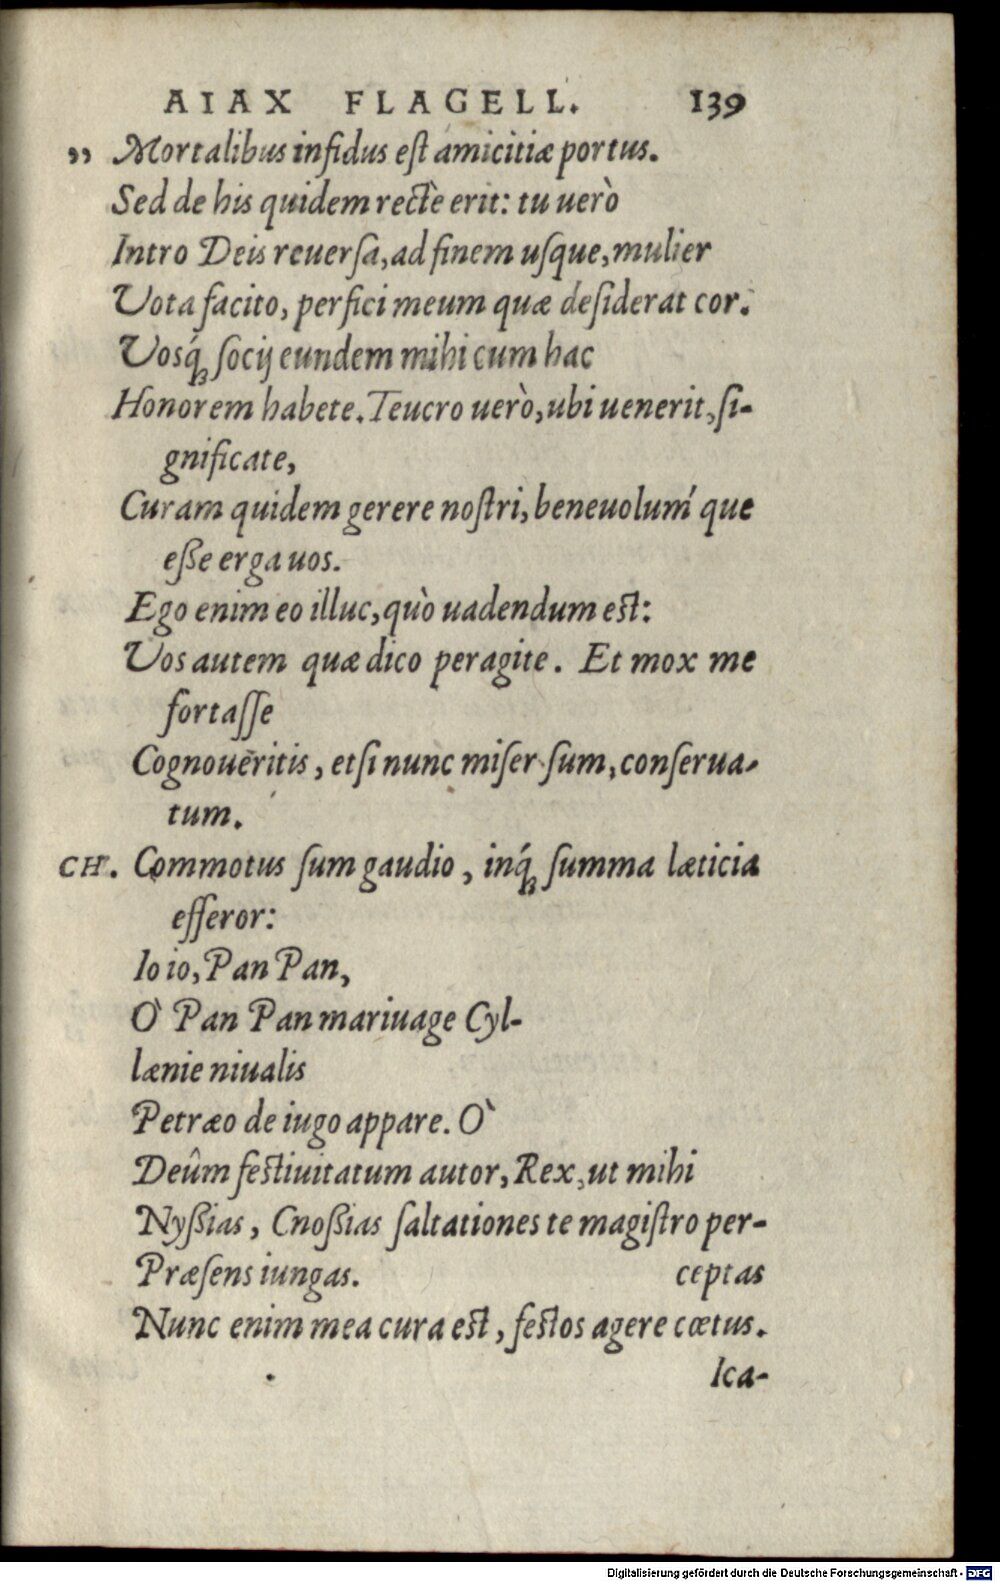 AIAX FLAGELL. 139
„ Mortalibus infidus est amicitiæ portus.
Sed de his quidem rectè erit: tu uerò
Intro Deis reuersa, ad finem usque, mulier
Vota facito, perfici meum quæ desiderat cor.
Vosq́ꝫ socij eundem mihi cum hac
Honorem habete. Teucro uerò, ubi uenerit, si-
gnificate,
Curam quidem gerere nostri, beneuolum´ que
eße erga uos.
Ego enim eo illuc, quò uadendum est:
Vos autem quæ dico peragite. Et mox me
fortasse
Cognouēritis, etsi nunc miser sum, conserua-
tum.
CH. Commotus sum gaudio, inq́ꝫ summa læticia
efferor:
Io io, Pan Pan,
Ò Pan Pan mariuage Cyl-
lænie niualis
Petræo de iugo appare. Ò
Deûm festiuitatum autor, Rex, ut mihi
Nyßias, Cnoßias saltationes te magistro per-
Præsens iungas. ceptas
Nunc enim mea cura est, festos agere cœtus.
Ica-
Digitalisierung gefördert durch die Deutsche Forschungsgemeinschaft - DFG